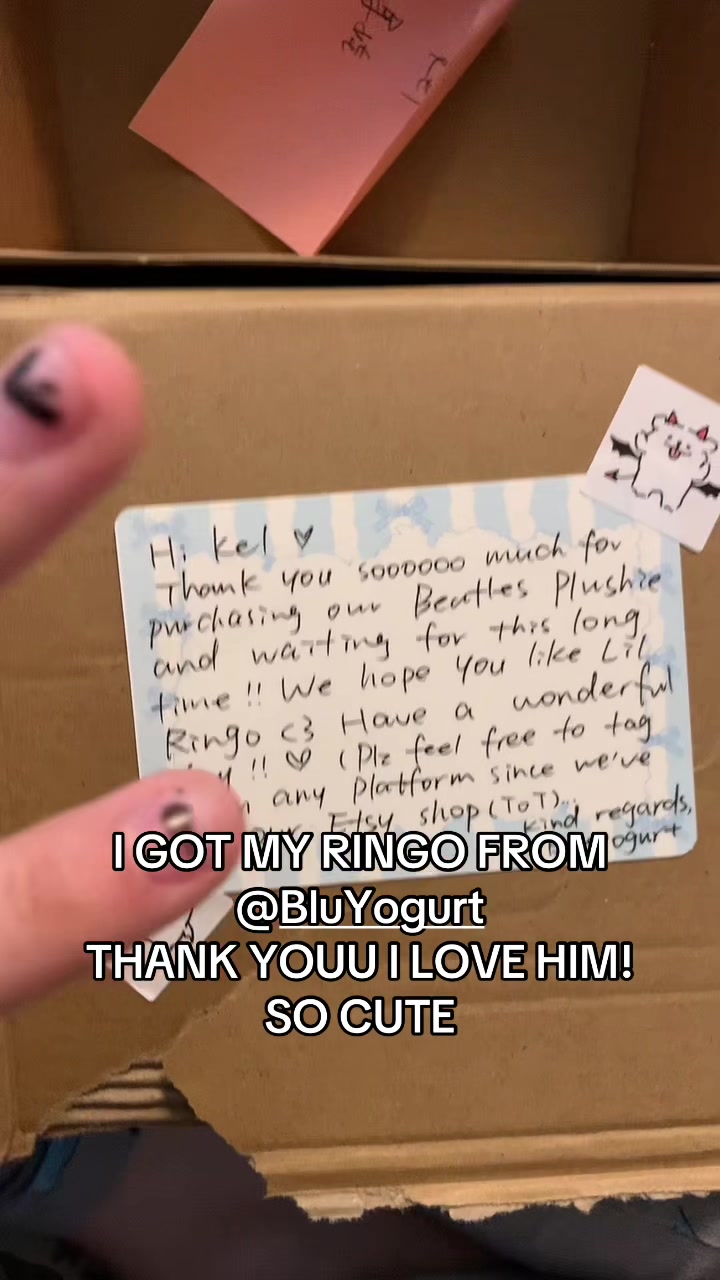 Hi kel ♡
Thank you soooooo much for
purchasing our Beatles Plushie
and waiting for this long
time !! We hope you like Lil
Ringo <3 Have a wonderful
!! ♡ (Plz feel free to tag
any Platform since we've
Etsy shop (ToT)
kind regards,
I GOT MY RINGO FROM
@BluYogurt
THANK YOUU I LOVE HIM!
SO CUTE